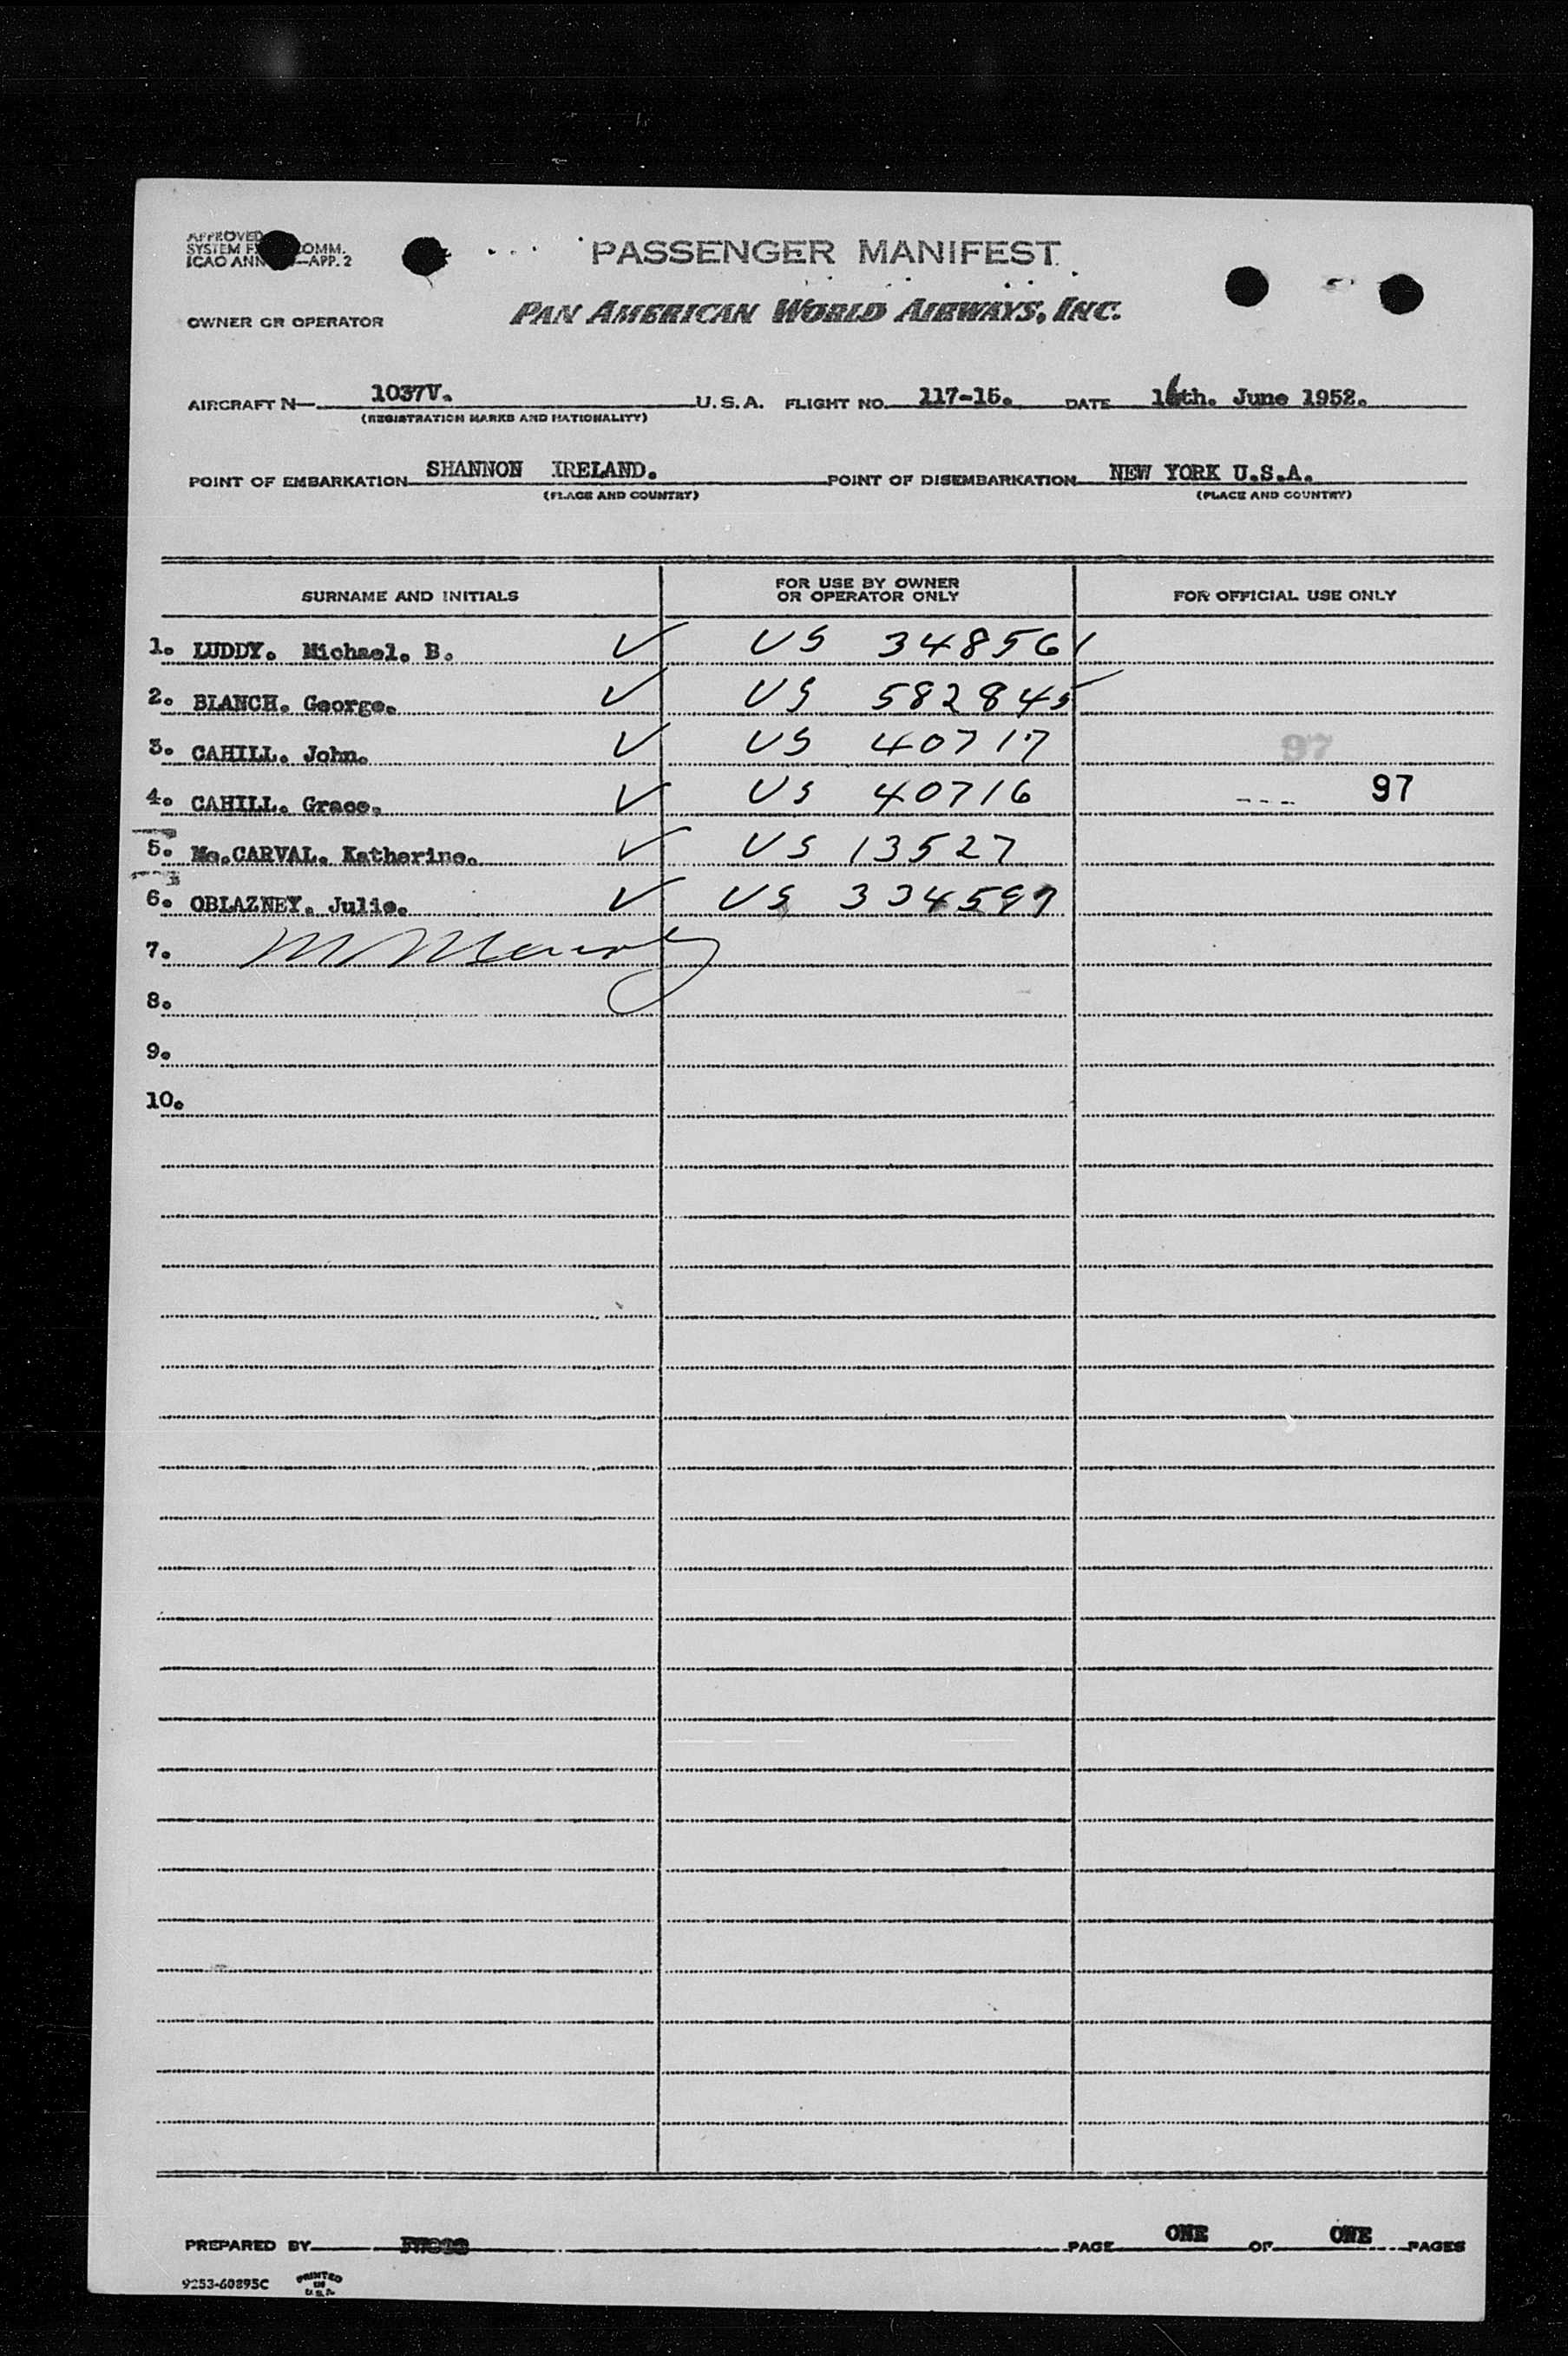 APPROVED
SYSTEM F OMM.
ICAO ANN —APP. 2
PASSENGER MANIFEST
OWNER OR OPERATOR
PAN AMERICAN WORLD AIRWAYS, INC.
AIRCRAFT N— 1037V. U.S.A. FLIGHT NO. 117-15. DATE 16th. June 1952.
(REGISTRATION MARKS AND NATIONALITY)
POINT OF EMBARKATION SHANNON IRELAND. POINT OF DISEMBARKATION NEW YORK U.S.A.
(PLACE AND COUNTRY) (PLACE AND COUNTRY)
SURNAME AND INITIALS FOR USE BY OWNER OR OPERATOR ONLY FOR OFFICIAL USE ONLY
1. LUDDY. Michael. B. ✓ US 348561
2. BLANCH. George. ✓ US 582845
3. CAHILL. John. ✓ US 40717 97
4. CAHILL. Grace. ✓ US 40716 --- 97
5. Mc.CARVAL. Katherine. ✓ US 13527
6. OBLAZNEY. Julie. ✓ US 334597
7.
8.
9.
10.
PREPARED BY PAGE ONE OF ONE PAGES
9253-60895C PRINTED IN U.S.A.